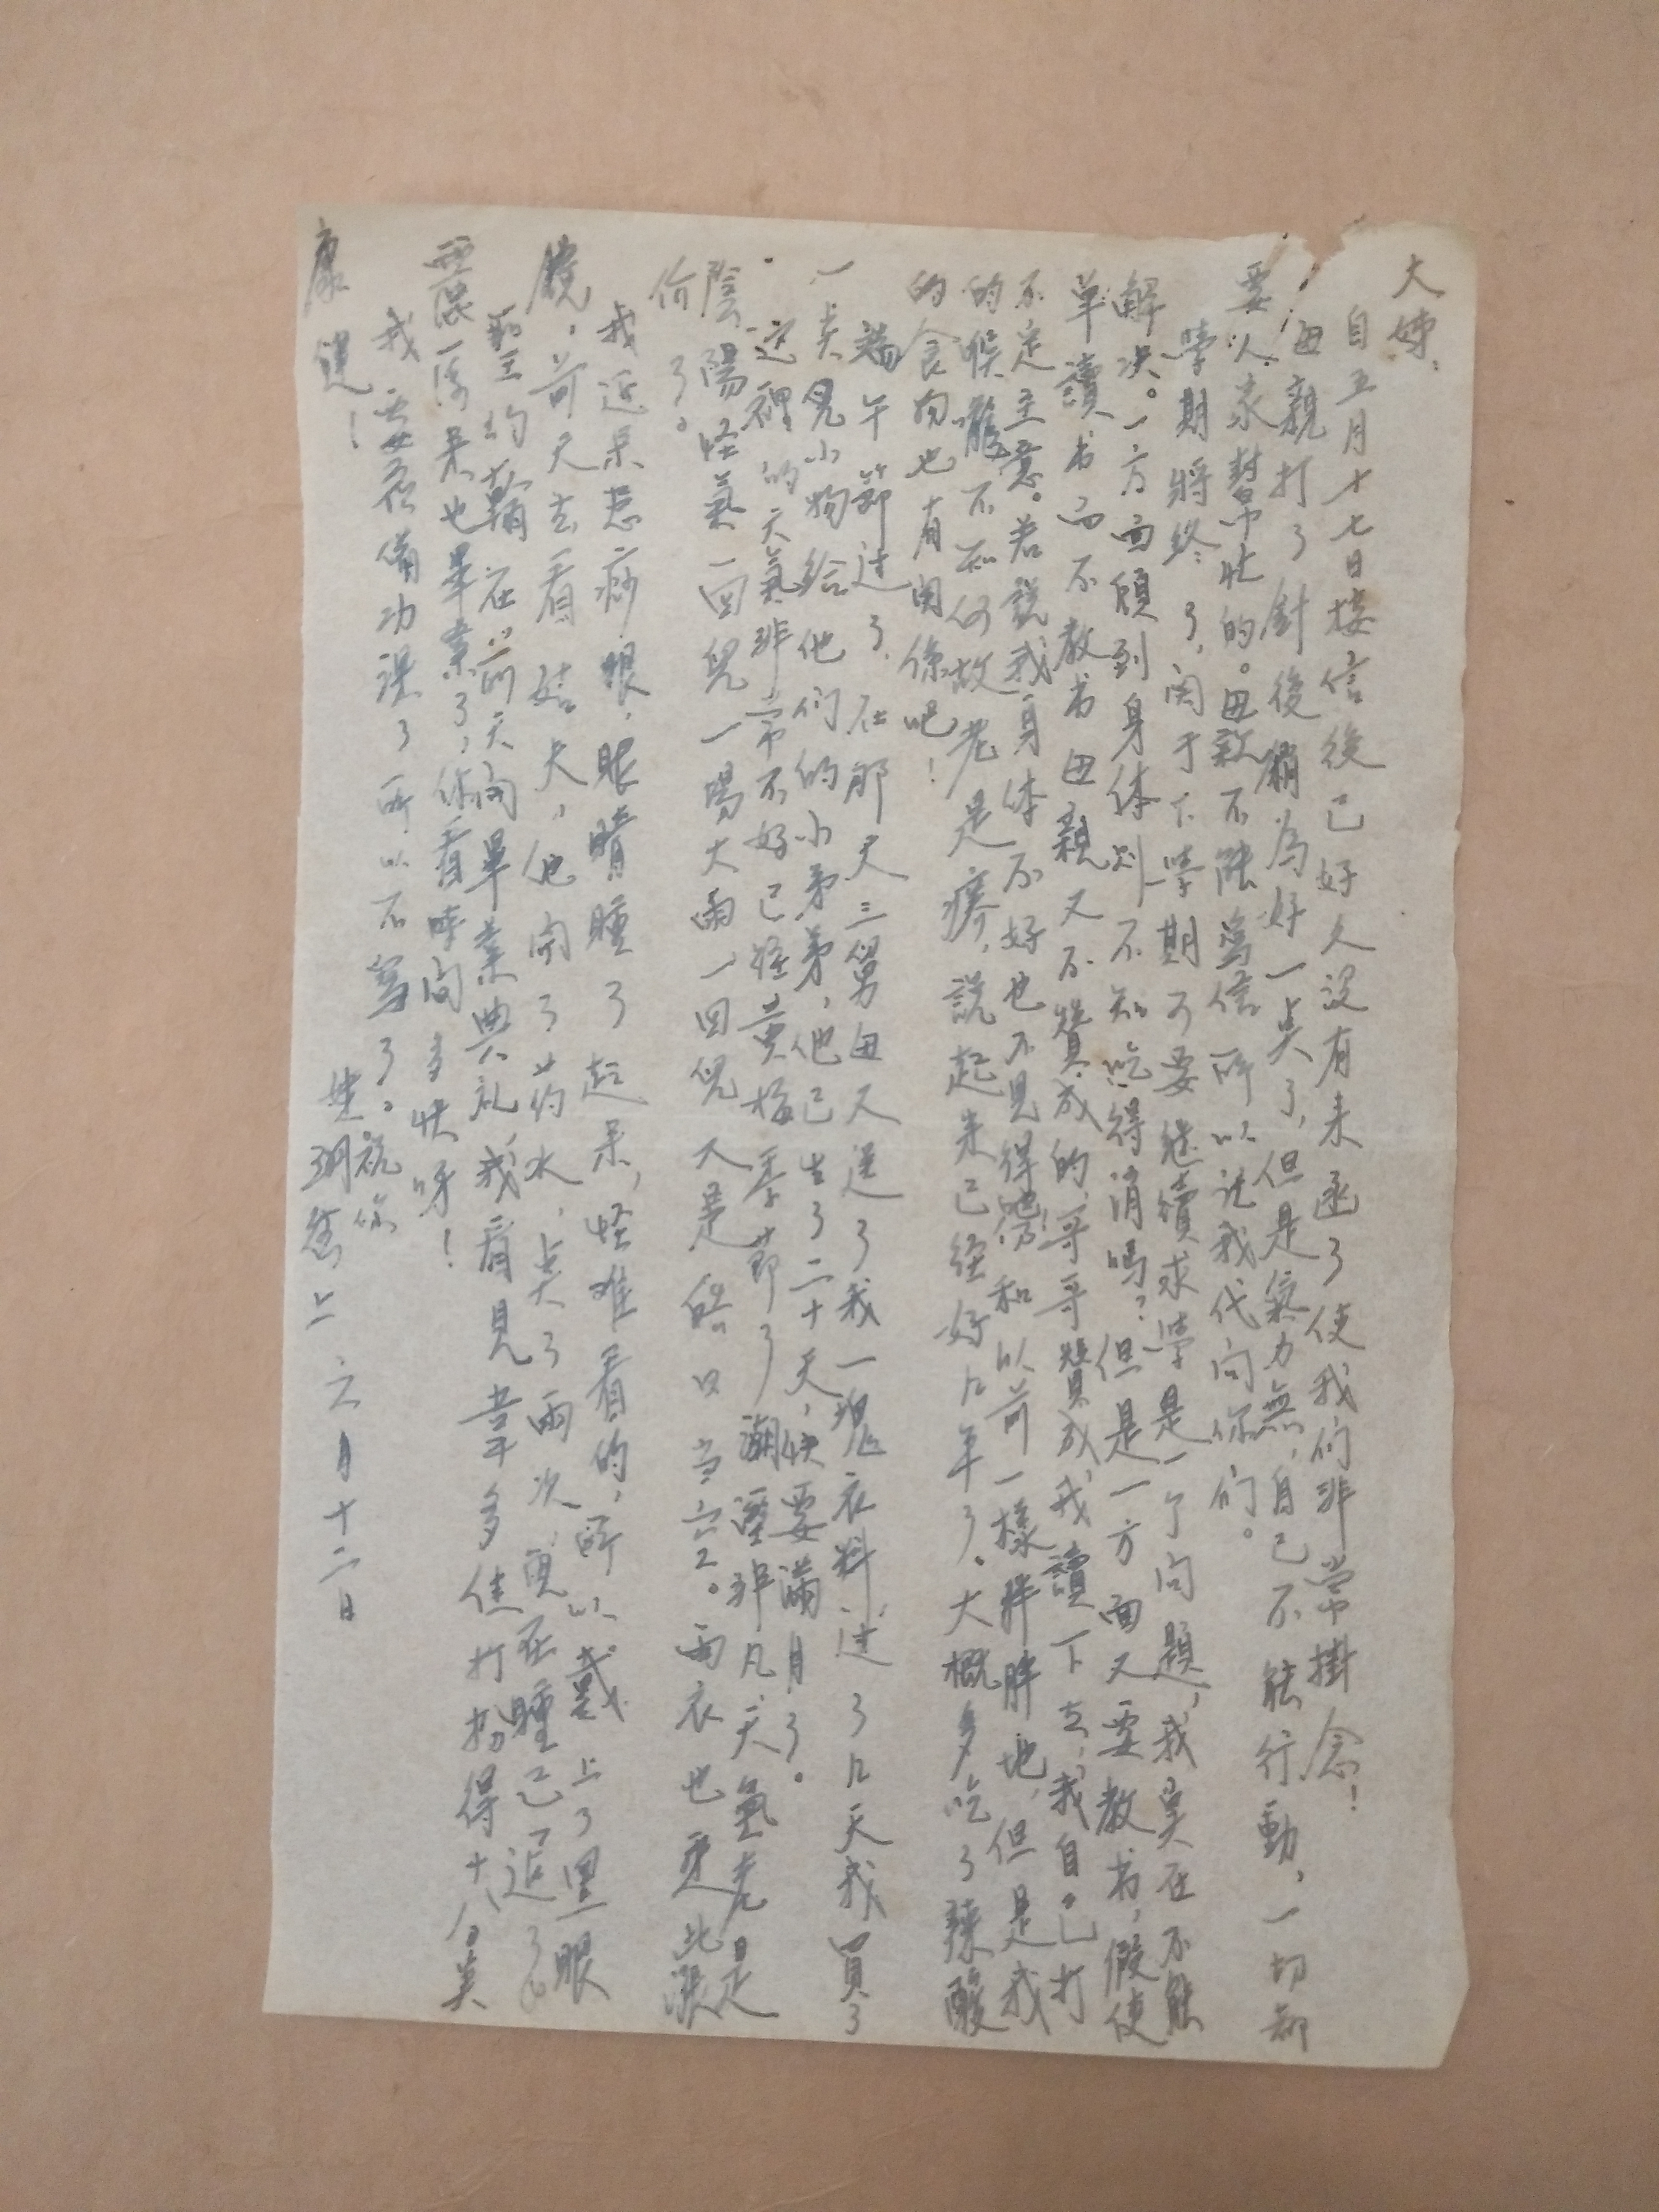 大姊：
自五月十七日接信後已好久没有来函了使我们非常掛念！
母親打了針後稍為好一点了，但是氣力無，自己不能行動，一切都
要人家幫忙的。母親不能寫信所以託我代向你们。
學期將終了，関于下學期可要继續求學是一个问題，我実在不能
解决。一方面顧到身体则不知吃得消嗎？但是一方面又要教书，假使
单讀书而不教书母親又不賛成的，哥哥賛成我讀下去，我自己打
不定主意。若説我身体不好也不見得，和以前一樣胖胖地，但是我
的喉嚨不知何故老是痒，説起来已经好几年了。大概多吃了辣酸
的食物也有関係吧！
端午節过了，在那天三舅母又送了我一塊衣料过了几天我買了
一点兒小物给他们的小弟弟，他已生了二十天，快要满月了。
这裡的天氣非常不好已経黄梅季節了潮溼非凡，天氣老是
陰陽怪氣一回兒一場大雨一回兒又是皓日当空。雨衣也更比漲
价了。
我近来惹痧眼，眼睛腫了起来，怪难看的，所以戴上了黑眼
鏡，前天去看姑夫，他開了药水，点了兩次現在腫已退了
聖约翰在前天開畢業典礼我看見韋多佳打扮得十分美
一係来也畢業了，你看時间多快呀！
我要去准備功课了所以不寫了。祝你
康健！
妹 上 六月十二日